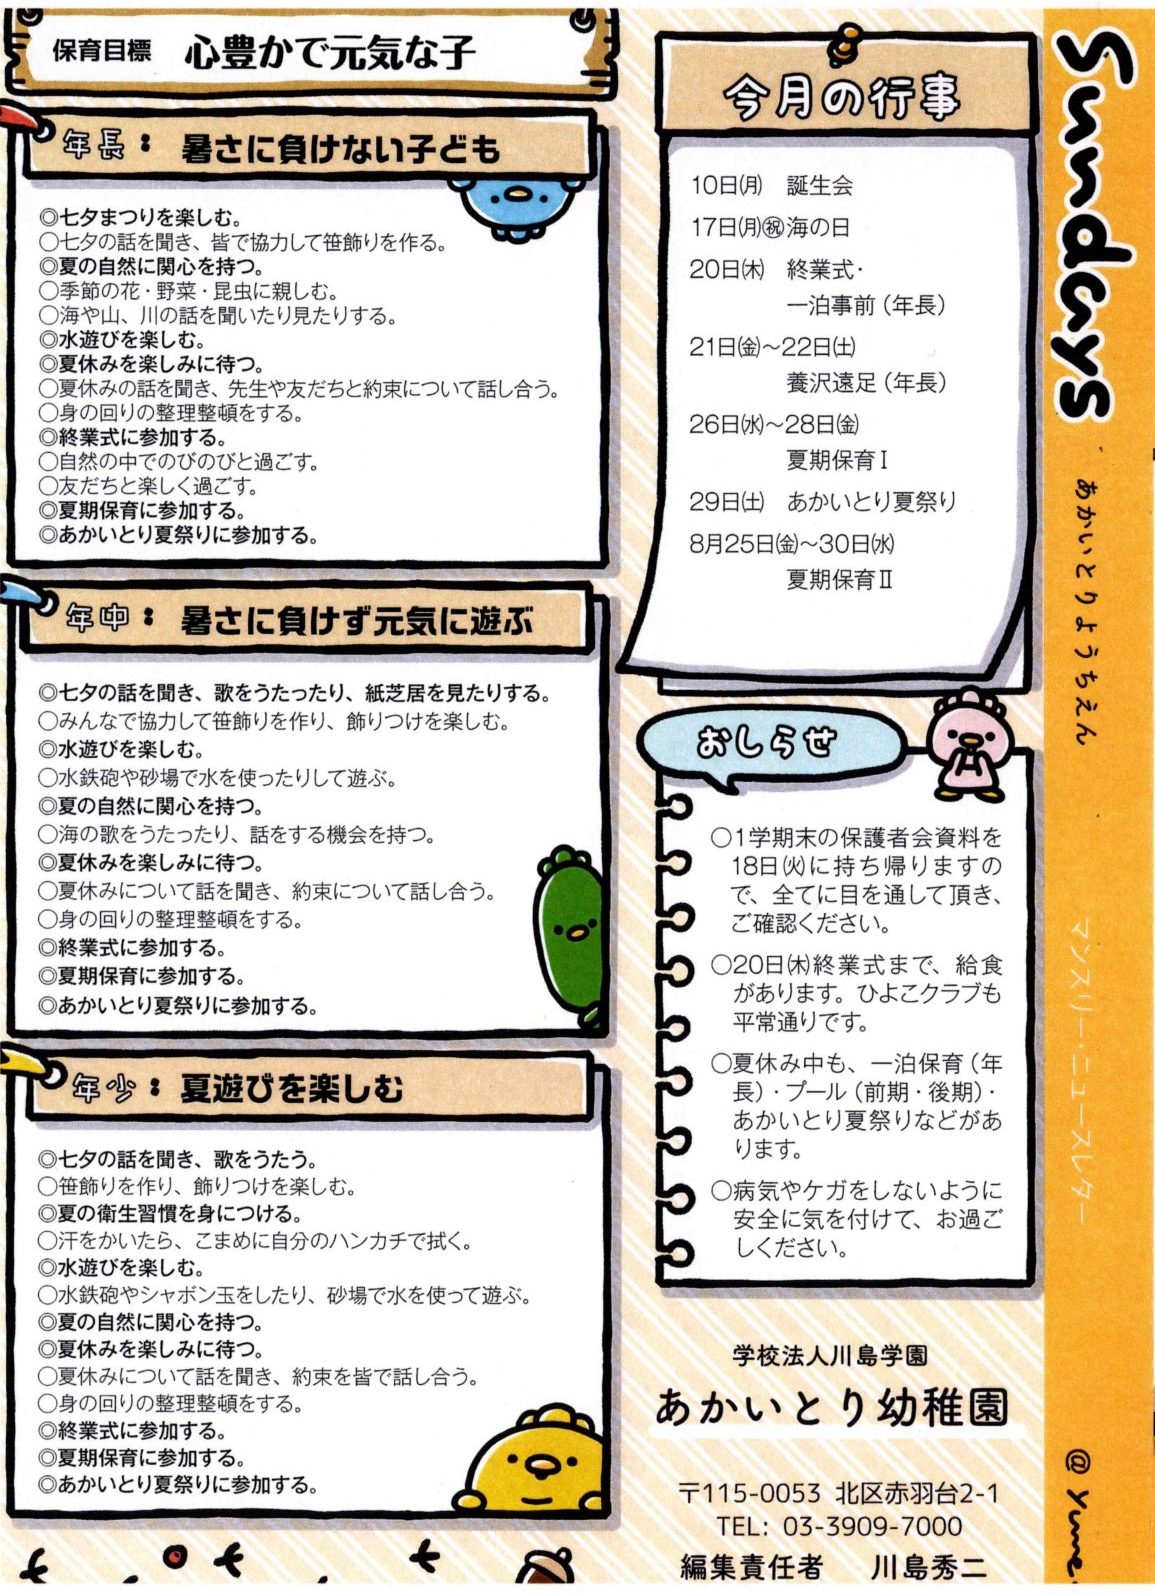 保育目標 心豊かで元気な子
年長： 暑さに負けない子ども
◎七夕まつりを楽しむ。
○七夕の話を聞き、皆で協力して笹飾りを作る。
◎夏の自然に関心を持つ。
○季節の花・野菜・昆虫に親しむ。
○海や山、川の話を聞いたり見たりする。
◎水遊びを楽しむ。
◎夏休みを楽しみに待つ。
○夏休みの話を聞き、先生や友だちと約束について話し合う。
○身の回りの整理整頓をする。
◎終業式に参加する。
○自然の中でのびのびと過ごす。
○友だちと楽しく過ごす。
◎夏期保育に参加する。
◎あかいとり夏祭りに参加する。
年中： 暑さに負けず元気に遊ぶ
◎七夕の話を聞き、歌をうたったり、紙芝居を見たりする。
○みんなで協力して笹飾りを作り、飾りつけを楽しむ。
◎水遊びを楽しむ。
○水鉄砲や砂場で水を使ったりして遊ぶ。
◎夏の自然に関心を持つ。
○海の歌をうたったり、話をする機会を持つ。
◎夏休みを楽しみに待つ。
○夏休みについて話を聞き、約束について話し合う。
○身の回りの整理整頓をする。
◎終業式に参加する。
◎夏期保育に参加する。
◎あかいとり夏祭りに参加する。
年少： 夏遊びを楽しむ
◎七夕の話を聞き、歌をうたう。
○笹飾りを作り、飾りつけを楽しむ。
◎夏の衛生習慣を身につける。
○汗をかいたら、こまめに自分のハンカチで拭く。
◎水遊びを楽しむ。
○水鉄砲やシャボン玉をしたり、砂場で水を使って遊ぶ。
◎夏の自然に関心を持つ。
◎夏休みを楽しみに待つ。
○夏休みについて話を聞き、約束を皆で話し合う。
○身の回りの整理整頓をする。
◎終業式に参加する。
◎夏期保育に参加する。
◎あかいとり夏祭りに参加する。
今月の行事
10日㈪ 誕生会
17日㈪㊗海の日
20日㈭ 終業式・
一泊事前（年長）
21日㈮～22日㈯
養沢遠足（年長）
26日㈬～28日㈮
夏期保育Ⅰ
29日㈯ あかいとり夏祭り
8月25日㈮～30日㈬
夏期保育Ⅱ
おしらせ
○1学期末の保護者会資料を
18日㈫に持ち帰りますの
で、全てに目を通して頂き、
ご確認ください。
○20日㈭終業式まで、給食
があります。ひよこクラブも
平常通りです。
○夏休み中も、一泊保育（年
長）・プール（前期・後期）・
あかいとり夏祭りなどがあ
ります。
○病気やケガをしないように
安全に気を付けて、お過ご
しください。
学校法人川島学園
あかいとり幼稚園
〒115-0053 北区赤羽台2-1
TEL: 03-3909-7000
編集責任者 川島秀二
Sundays
あかいとりようちえん
マンスリー・ニュースレター
@ yume.